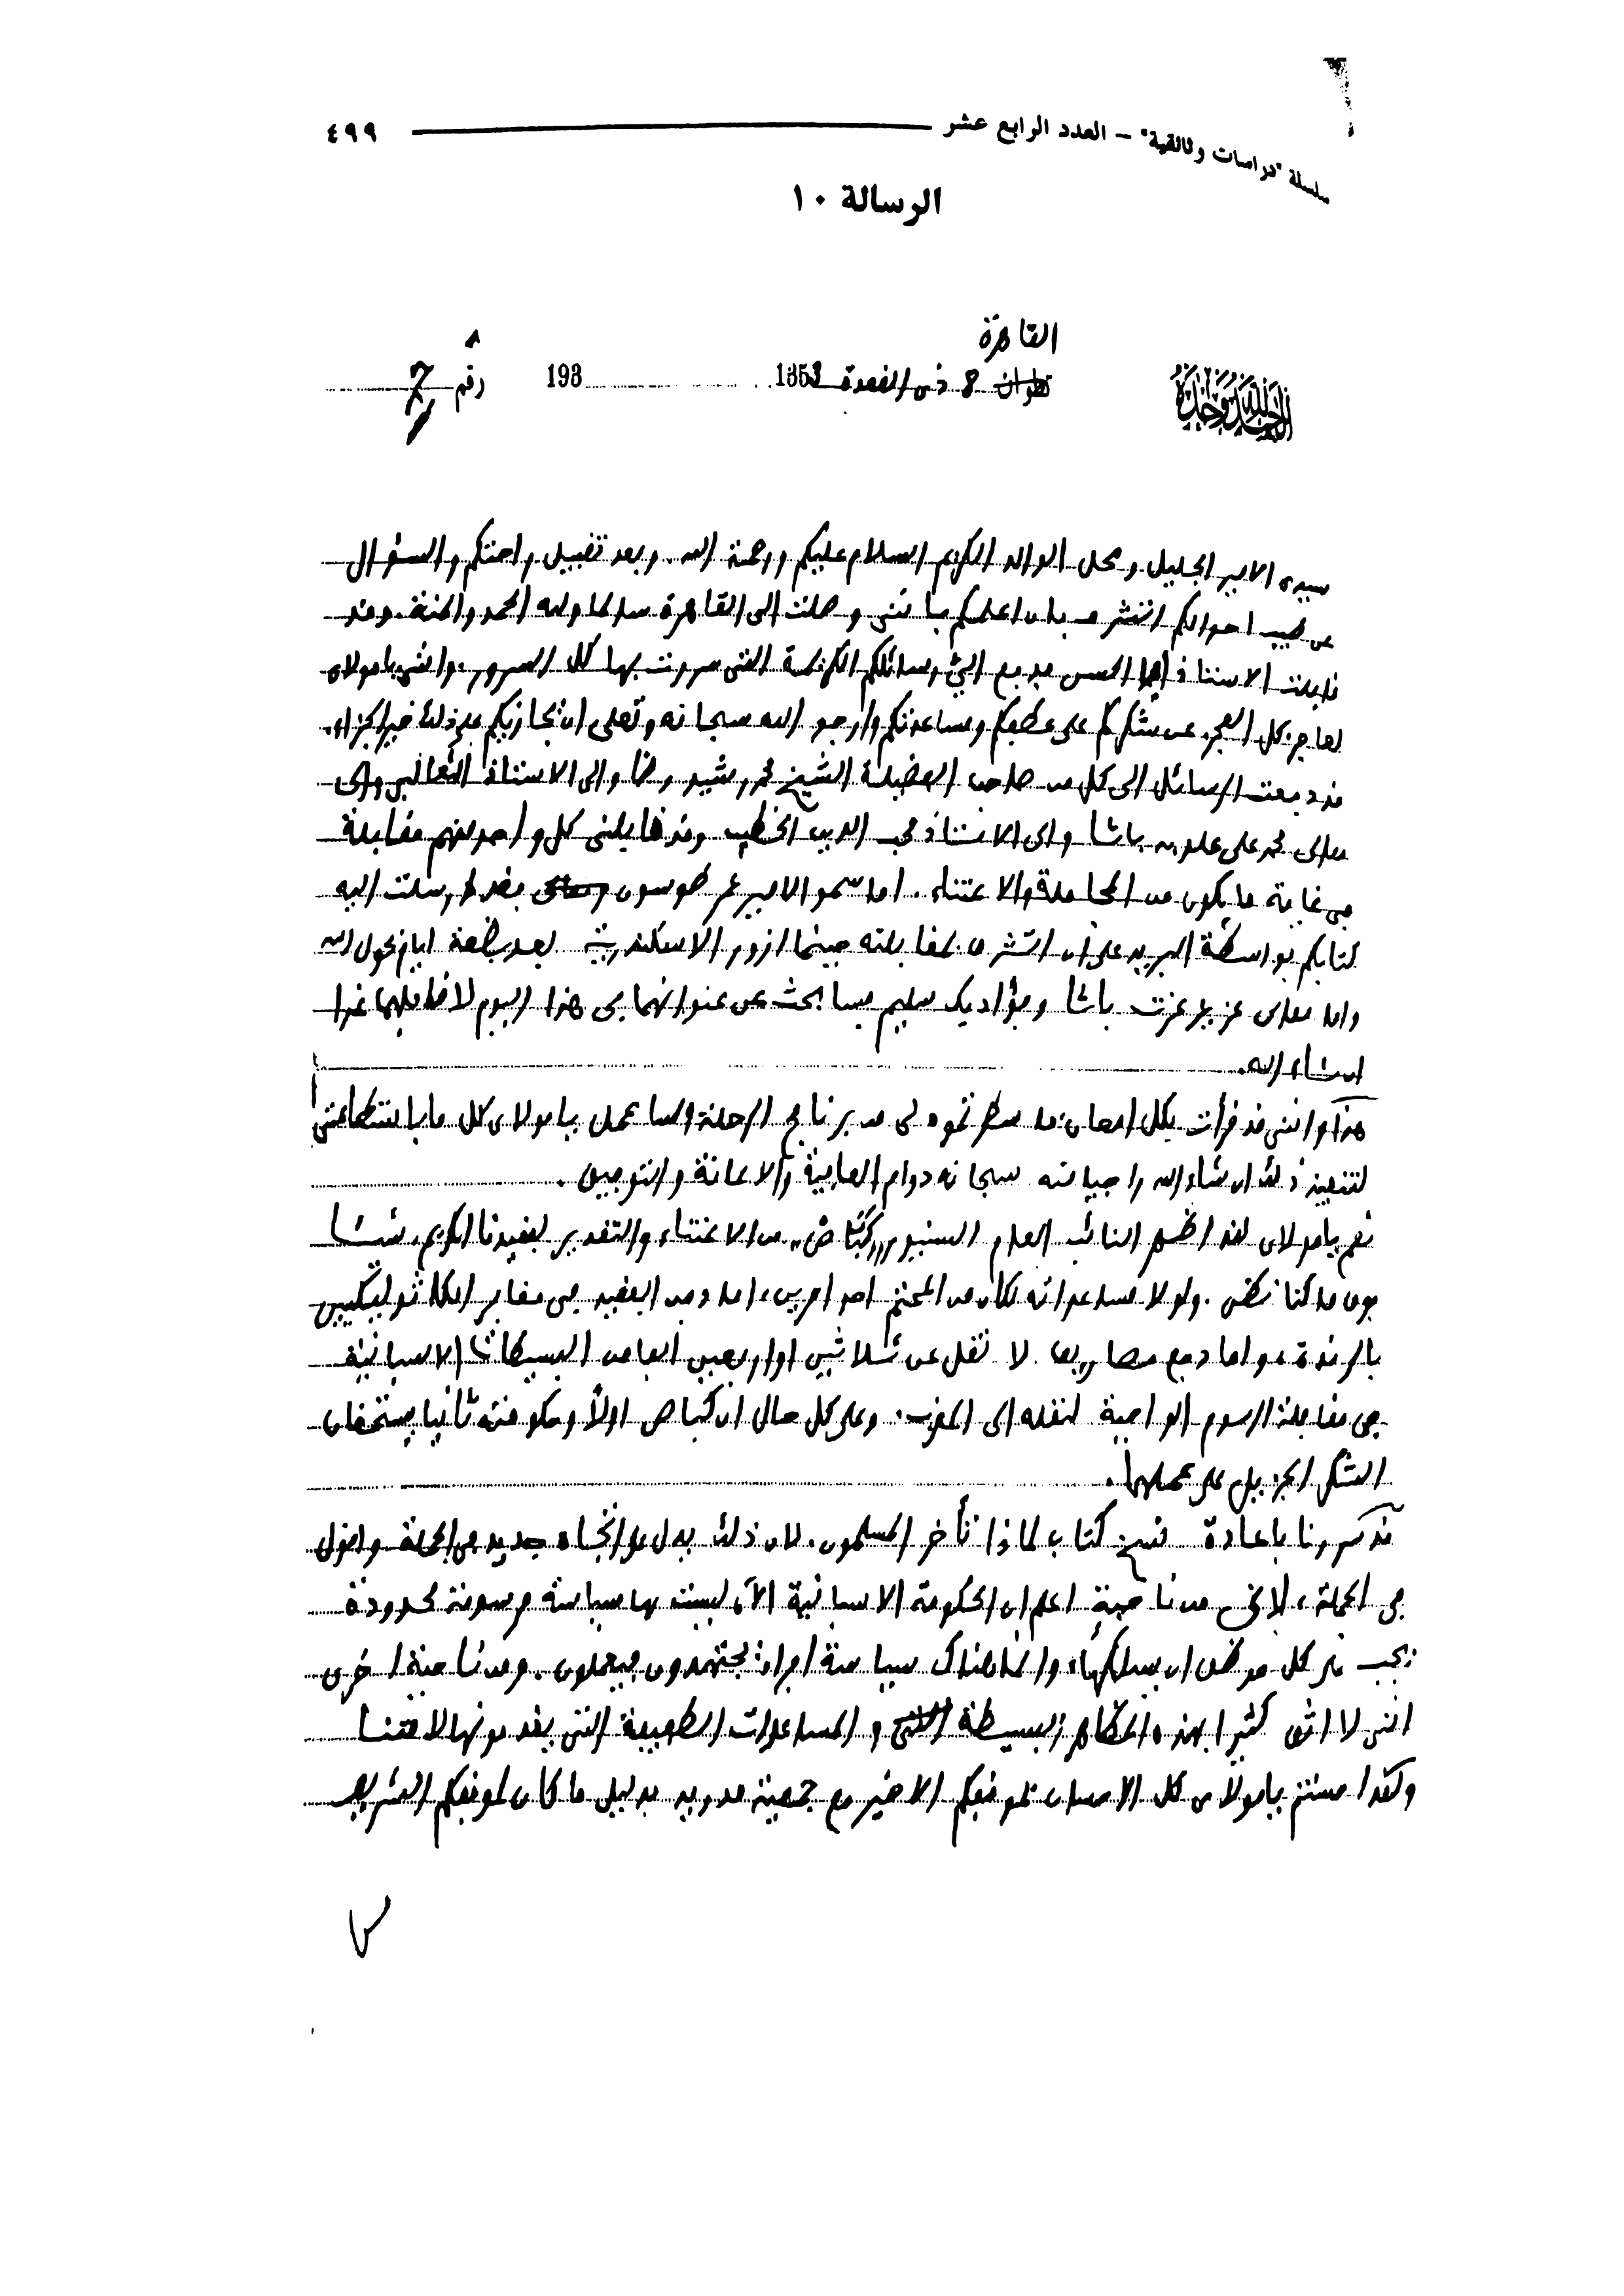 سلسلة "دراسات وثائقية" – العدد الرابع عشر ٤٩٩
الرسالة ١٠
القاهرة
الحمد لله وحده
تطوان 8 ذي القعدة 1353 193 رقم 7
سيدي الامير الجليل ومحل الوالد الكريم السلام عليكم ورحمة الله. وبعد تقبيل راحتكم والسؤال
عن طيب احوالكم اتشرف بان اعلمكم باننى وصلت الى القاهرة سالما ولله الحمد والمنة. وقد
قابلت الاستاذ ابا الحسن فدفع الي رسائلكم الكريمة التى سررت بها كل السرور. وانى يا مولاي
لعاجز كل العجز عن شكركم على عطفكم ومساعدتكم وارجو الله سبحانه وتعلى ان يجازيكم على ذلك خير الجزاء.
قد دفعت الرسائل الى كل من صاحب الفضيلة الشيخ محمد رشيد رضا والى الاستاذ الثعالبي والى
معالى محمد على علوبه باشا والى الاستاذ محب الدين الخطيب وقد قابلنى كل واحد منهم مقابلة
في غاية ما يكون من المجاملة والاعتناء. اما سمو الامير عمر طوسون فقد ارسلت اليه
كتابكم بواسطة البريد على ان اتشرف بمقابلته حينما ازور الاسكندرية بعد بضعة ايام بحول الله
واما معالى عزيز عزت باشا وفؤاد بك سليم فسابحث عن عنوانهما في هذا اليوم لاقابلهما غدا
ان شاء الله.
هذا واننى قد قرأت بكل امعان ما سطرتموه لى من برنامج الرحلة وساعمل يا مولاي كل ما باستطاعتى
لتنفيذ ذلك ان شاء الله راجيا منه سبحانه دوام العافية والاعانة والتوفيق.
نعم يا مولاي لقد اظهر النائب العام السنيور "كباص" من الاعتناء والتقدير لفقيدنا الكريم، شيئا
فوق ما كنا نظن. ولولا مساعداته لكان من المحتم احد امرين، اما دفن الفقيد في مقابر الكاثوليكيين
بالرندة، واما دفع مصاريف لا تقل عن ثلاثين او اربعين الفا من البسيطات الاسبانية
في مقابلة الرسوم الواجبة لنقله الى المغرب. وعلى كل حال ان كباص اولاً وحكومته ثانيا يستحقان
الشكر الجزيل على عملهما.
قد سررنا باعادة نسخ كتاب لماذا تأخر المسلمون. لان ذلك يدل على اتجاه جديد في الجملة واقول
في الجملة، لانى من ناحية اعلم ان الحكومة الاسبانية الآن ليست لها سياسة مرسومة محدودة
يجب على كل موظف ان يسلكها، وانما هناك سياسة افراد يجتهدون فيعملون. ومن ناحية اخرى
اننى لا اثق كثيرا بهذه المظاهر البسيطة و المساعدات الطفيفة التى يقدمونها لامتنا
ولقد احسنتم يا مولاي كل الاحسان بموقفكم الاخير مع جمعية مدريد بدليل ما كان لموقفكم الشريف